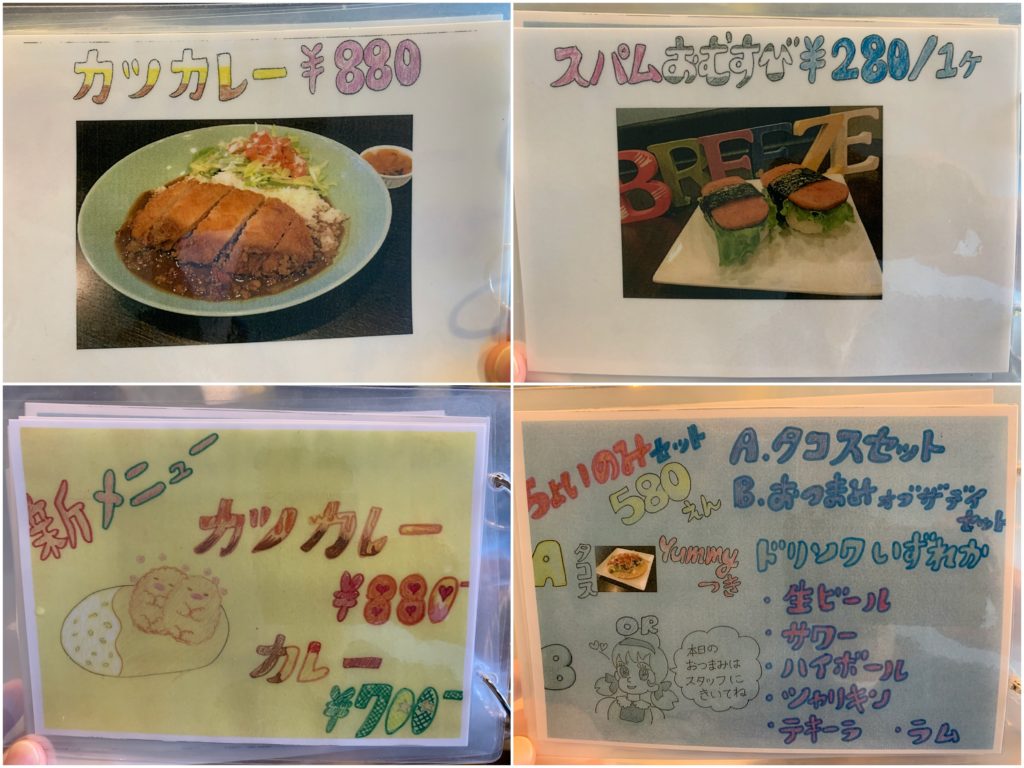 カツカレー ¥880
スパムおむすび ¥280/1ヶ
BREEZE
新メニュー
カツカレー
¥880-
カレー
¥700-
ちょいのみセット
580えん
A タコス
Yummyつき
OR
B
本日の
おつまみは
スタッフに
きいてね
A.タコスセット
B.おつまみオブザデイ
セット
ドリンクいずれか
・生ビール
・サワー
・ハイボール
・シャリキン
・テキーラ ・ラム